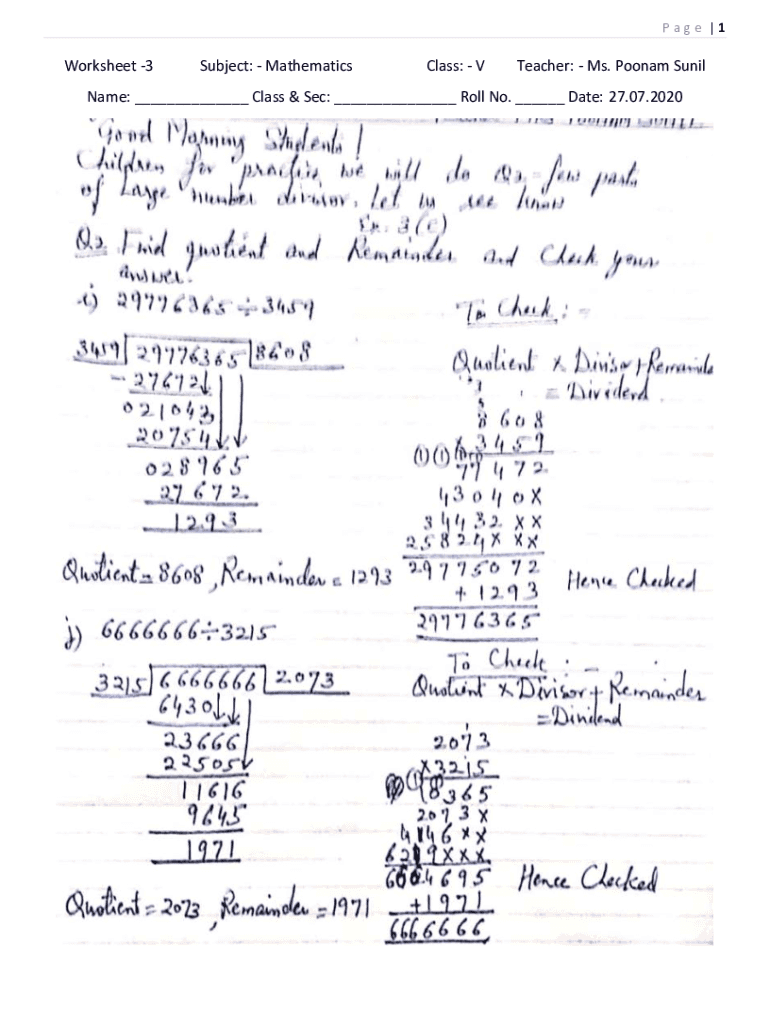 Page | 1
Worksheet -3 Subject: - Mathematics Class: - V Teacher: - Ms. Poonam Sunil
Name: ______________ Class & Sec: _______________ Roll No. ______ Date: 27.07.2020
Good Morning Students!
Children for practise we will do Q2 - few parts
of Large number divisor. Let us see know
Ex. 3(c)
Q2 Find quotient and Remainder and Check your
answer.
i) 29776365 ÷ 3459
3459 29776365 8608
- 27672
021043
20754
028965
27672
1293
Quotient = 8608, Remainder = 1293
To Check : -
Quotient x Divisor + Remainde
= Dividend
8608
x 3459
77472
43040x
34432xx
25824xxx
29775072
+ 1293
29776365
Hence Checked
j) 6666666 ÷ 3215
3215 6666666 2073
6430
23666
22505
11616
9645
1971
Quotient = 2073, Remainder = 1971
To Check : -
Quotient x Divisor + Remainder
= Dividend
2073
x3215
365
2073x
4146xx
6219xxx
4695
+1971
6666666
Hence Checked